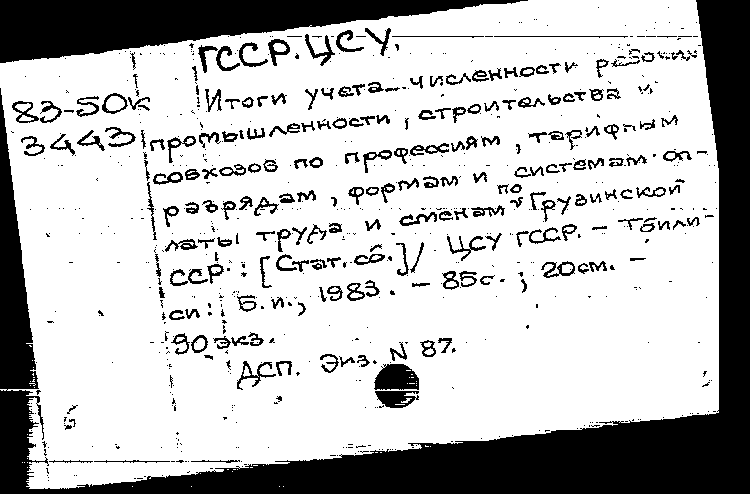 ГССР. ЦСУ.
83-50к Итоги учета численности рабочих
3443 промышленности, строительства и
совхозов по профессиям, тарифным
разрядам, формам и системам оп-
латы труда и сменам по Грузинской
ССР. : [Стат. сб.] / ЦСУ ГССР. – Тбили-
си : Б. и., 1983. – 85с. ; 20см. –
90 экз.
ДСП. Экз. N 87.
б